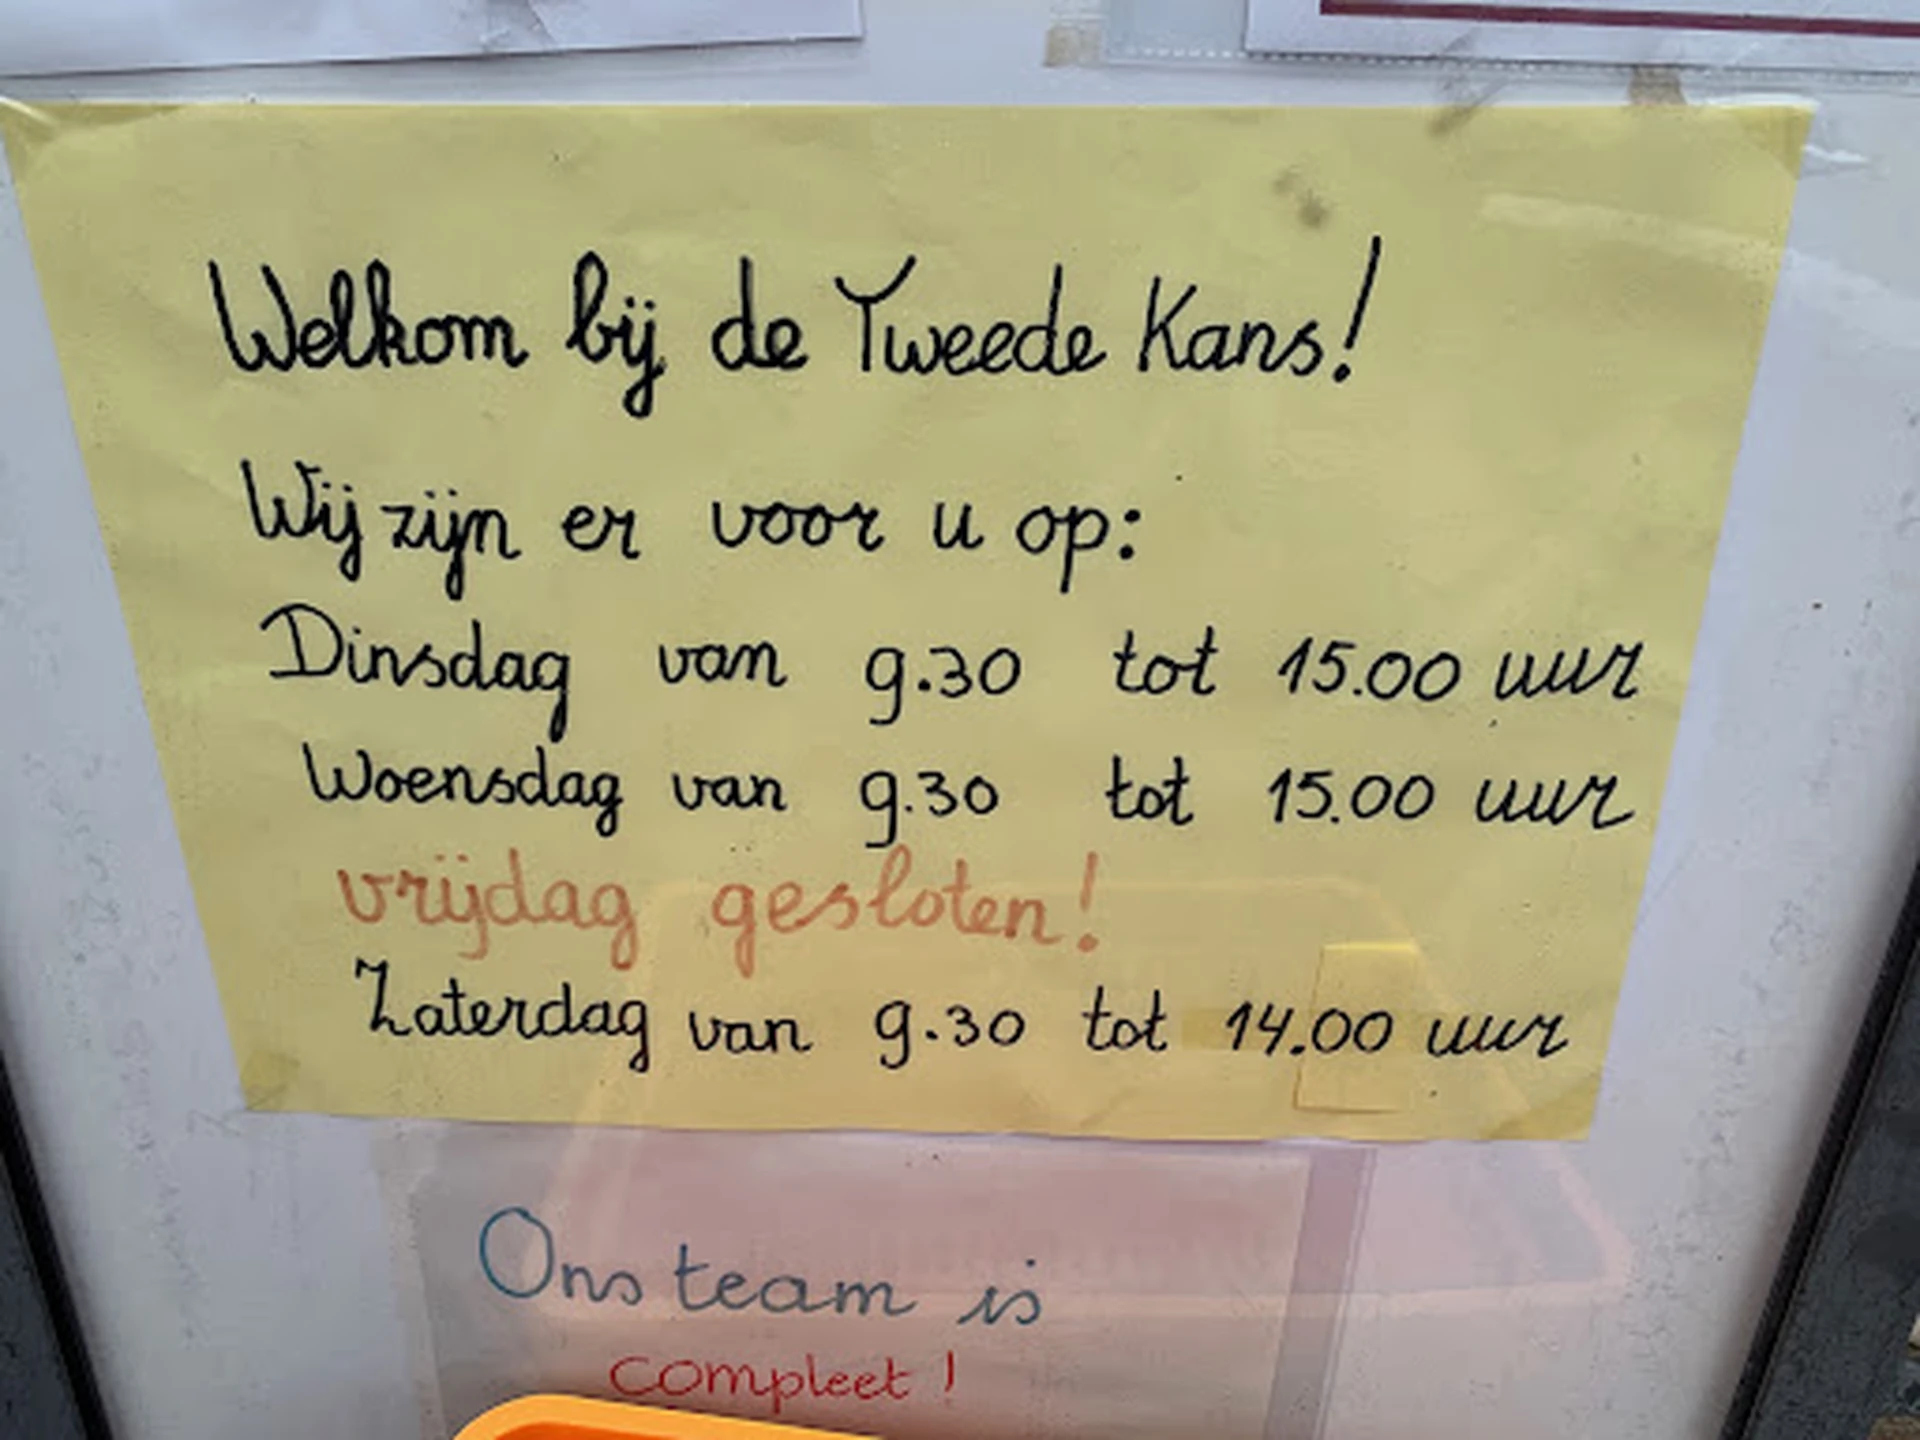 Welkom bij de Tweede Kans!
Wij zijn er voor u op:
Dinsdag van 9.30 tot 15.00 uur
Woensdag van 9.30 tot 15.00 uur
vrijdag gesloten!
Zaterdag van 9.30 tot 14.00 uur
Ons team is
compleet!